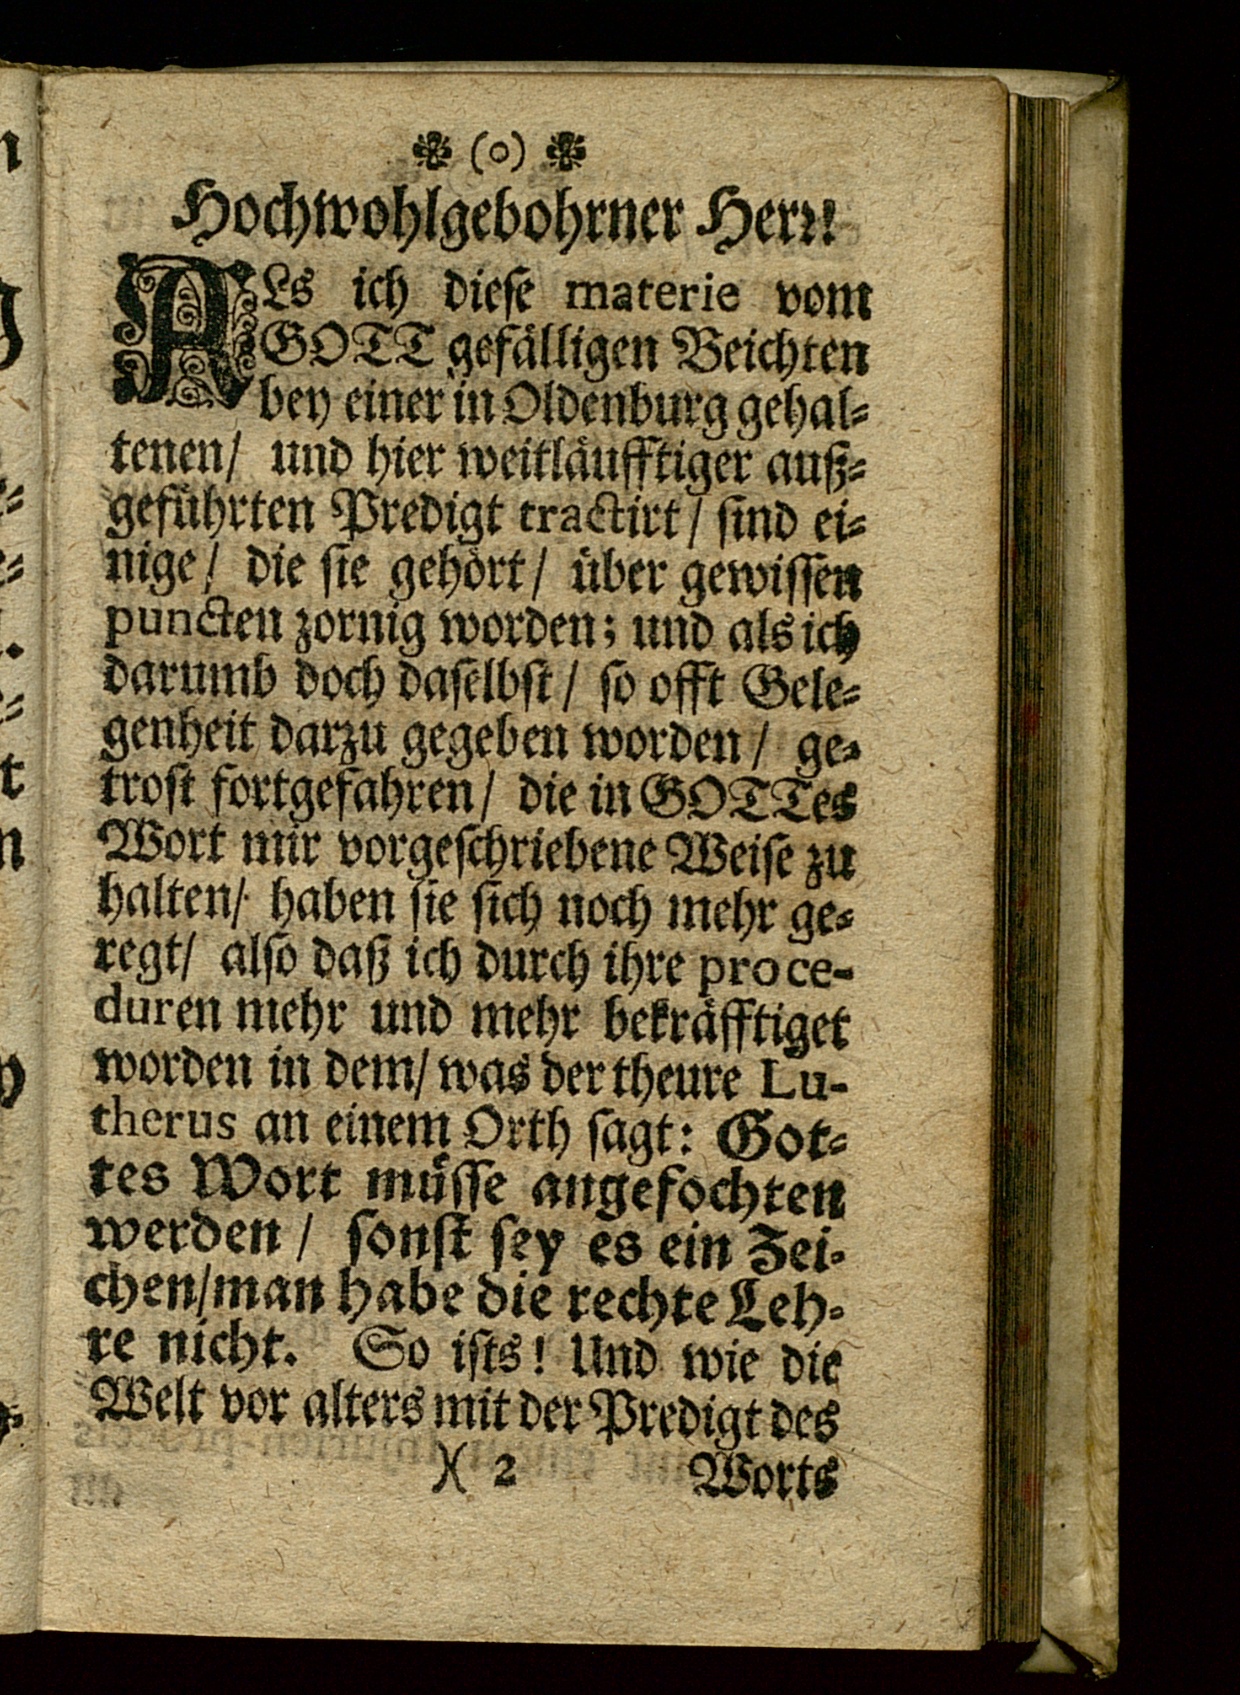 ❀ (o) ❀
Hochwohlgebohrner Herr!
ALs ich dieſe materie vom
GOTT gefälligen Beichten
bey einer in Oldenburg gehal⸗
tenen/ und hier weitläufftiger auß⸗
geführten Predigt tractirt/ ſind ei⸗
nige/ die ſie gehört/ über gewiſſen
puncten zornig worden; und als ich
darumb doch daſelbſt/ ſo offt Gele⸗
genheit darzu gegeben worden/ ge⸗
troſt fortgefahren/ die in GOTTes
Wort mir vorgeſchriebene Weiſe zu
halten/ haben ſie ſich noch mehr ge⸗
regt/ alſo daß ich durch ihre proce-
duren mehr und mehr bekräfftiget
worden in dem/ was der theure Lu-
therus an einem Orth ſagt: Got⸗
tes Wort müſſe angefochten
werden/ ſonſt ſey es ein Zei⸗
chen/man habe die rechte Leh⸗
re nicht. So iſts! Und wie die
Welt vor alters mit der Predigt des
)( 2 Worts